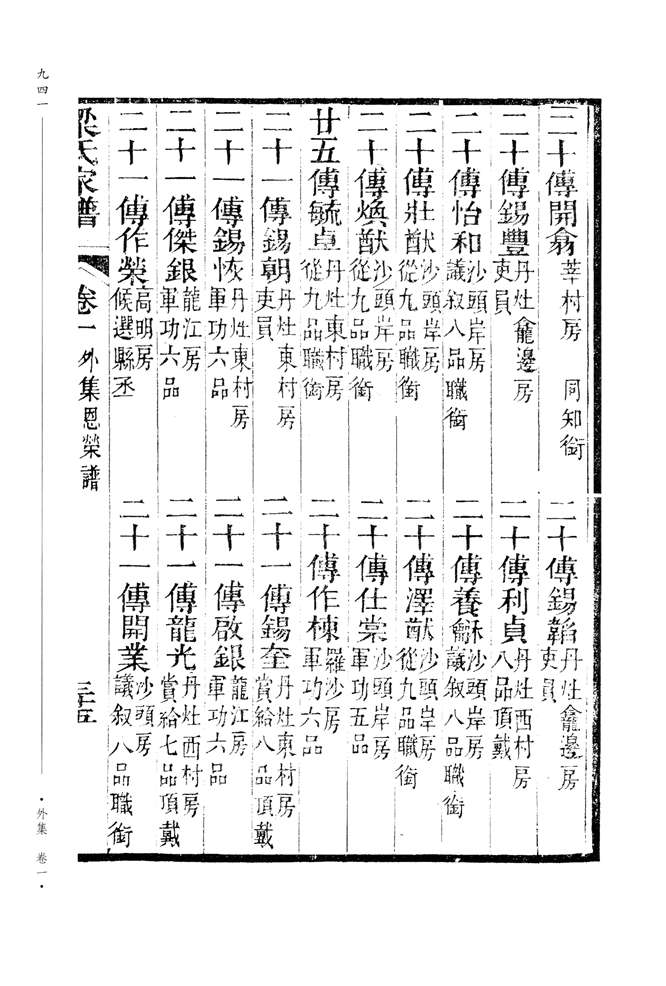 二十傳開翕 莘村房 同知銜
二十傳錫韜 丹灶龕邊房 吏員
二十傳錫豐 丹灶龕邊房 吏員
二十傳利貞 丹灶西村房 八品頂戴
二十傳怡和 沙頭岸房 議叙八品職銜
二十傳養龢 沙頭岸房 議叙八品職銜
二十傳壯猷 沙頭岸房 從九品職銜
二十傳澤猷 沙頭岸房 從九品職銜
二十傳煥猷 沙頭岸房 從九品職銜
二十傳仕棠 沙頭岸房 軍功五品
廿五傳毓卓 丹灶東村房 從九品職銜
二十傳作棟 羅沙房 軍功六品
二十一傳錫朝 丹灶東村房 吏員
二十一傳錫奎 丹灶東村房 賞給八品頂戴
二十一傳錫恢 丹灶東村房 軍功六品
二十一傳啟銀 龍江房 軍功六品
二十一傳傑銀 龍江房 軍功六品
二十一傳龍光 丹灶西村房 賞給七品頂戴
二十一傳作榮 高明房 候選縣丞
二十一傳開業 沙頭房 議叙八品職銜
梁氏家譜 卷一 外集恩榮譜 三十五
九四一
·外集 卷一·